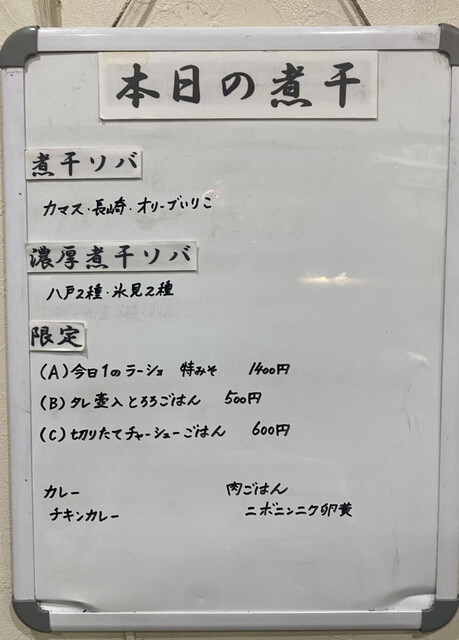 本日の煮干
煮干ソバ
カマス・長崎・オリーブいりこ
濃厚煮干ソバ
八戸2種・氷見2種
限定
(A) 今日1のラーショ 特みそ 1400円
(B) タレ壺入とろろごはん 500円
(C) 切りたてチャーシューごはん 600円
カレー 肉ごはん
チキンカレー ニボニンニク卵黄